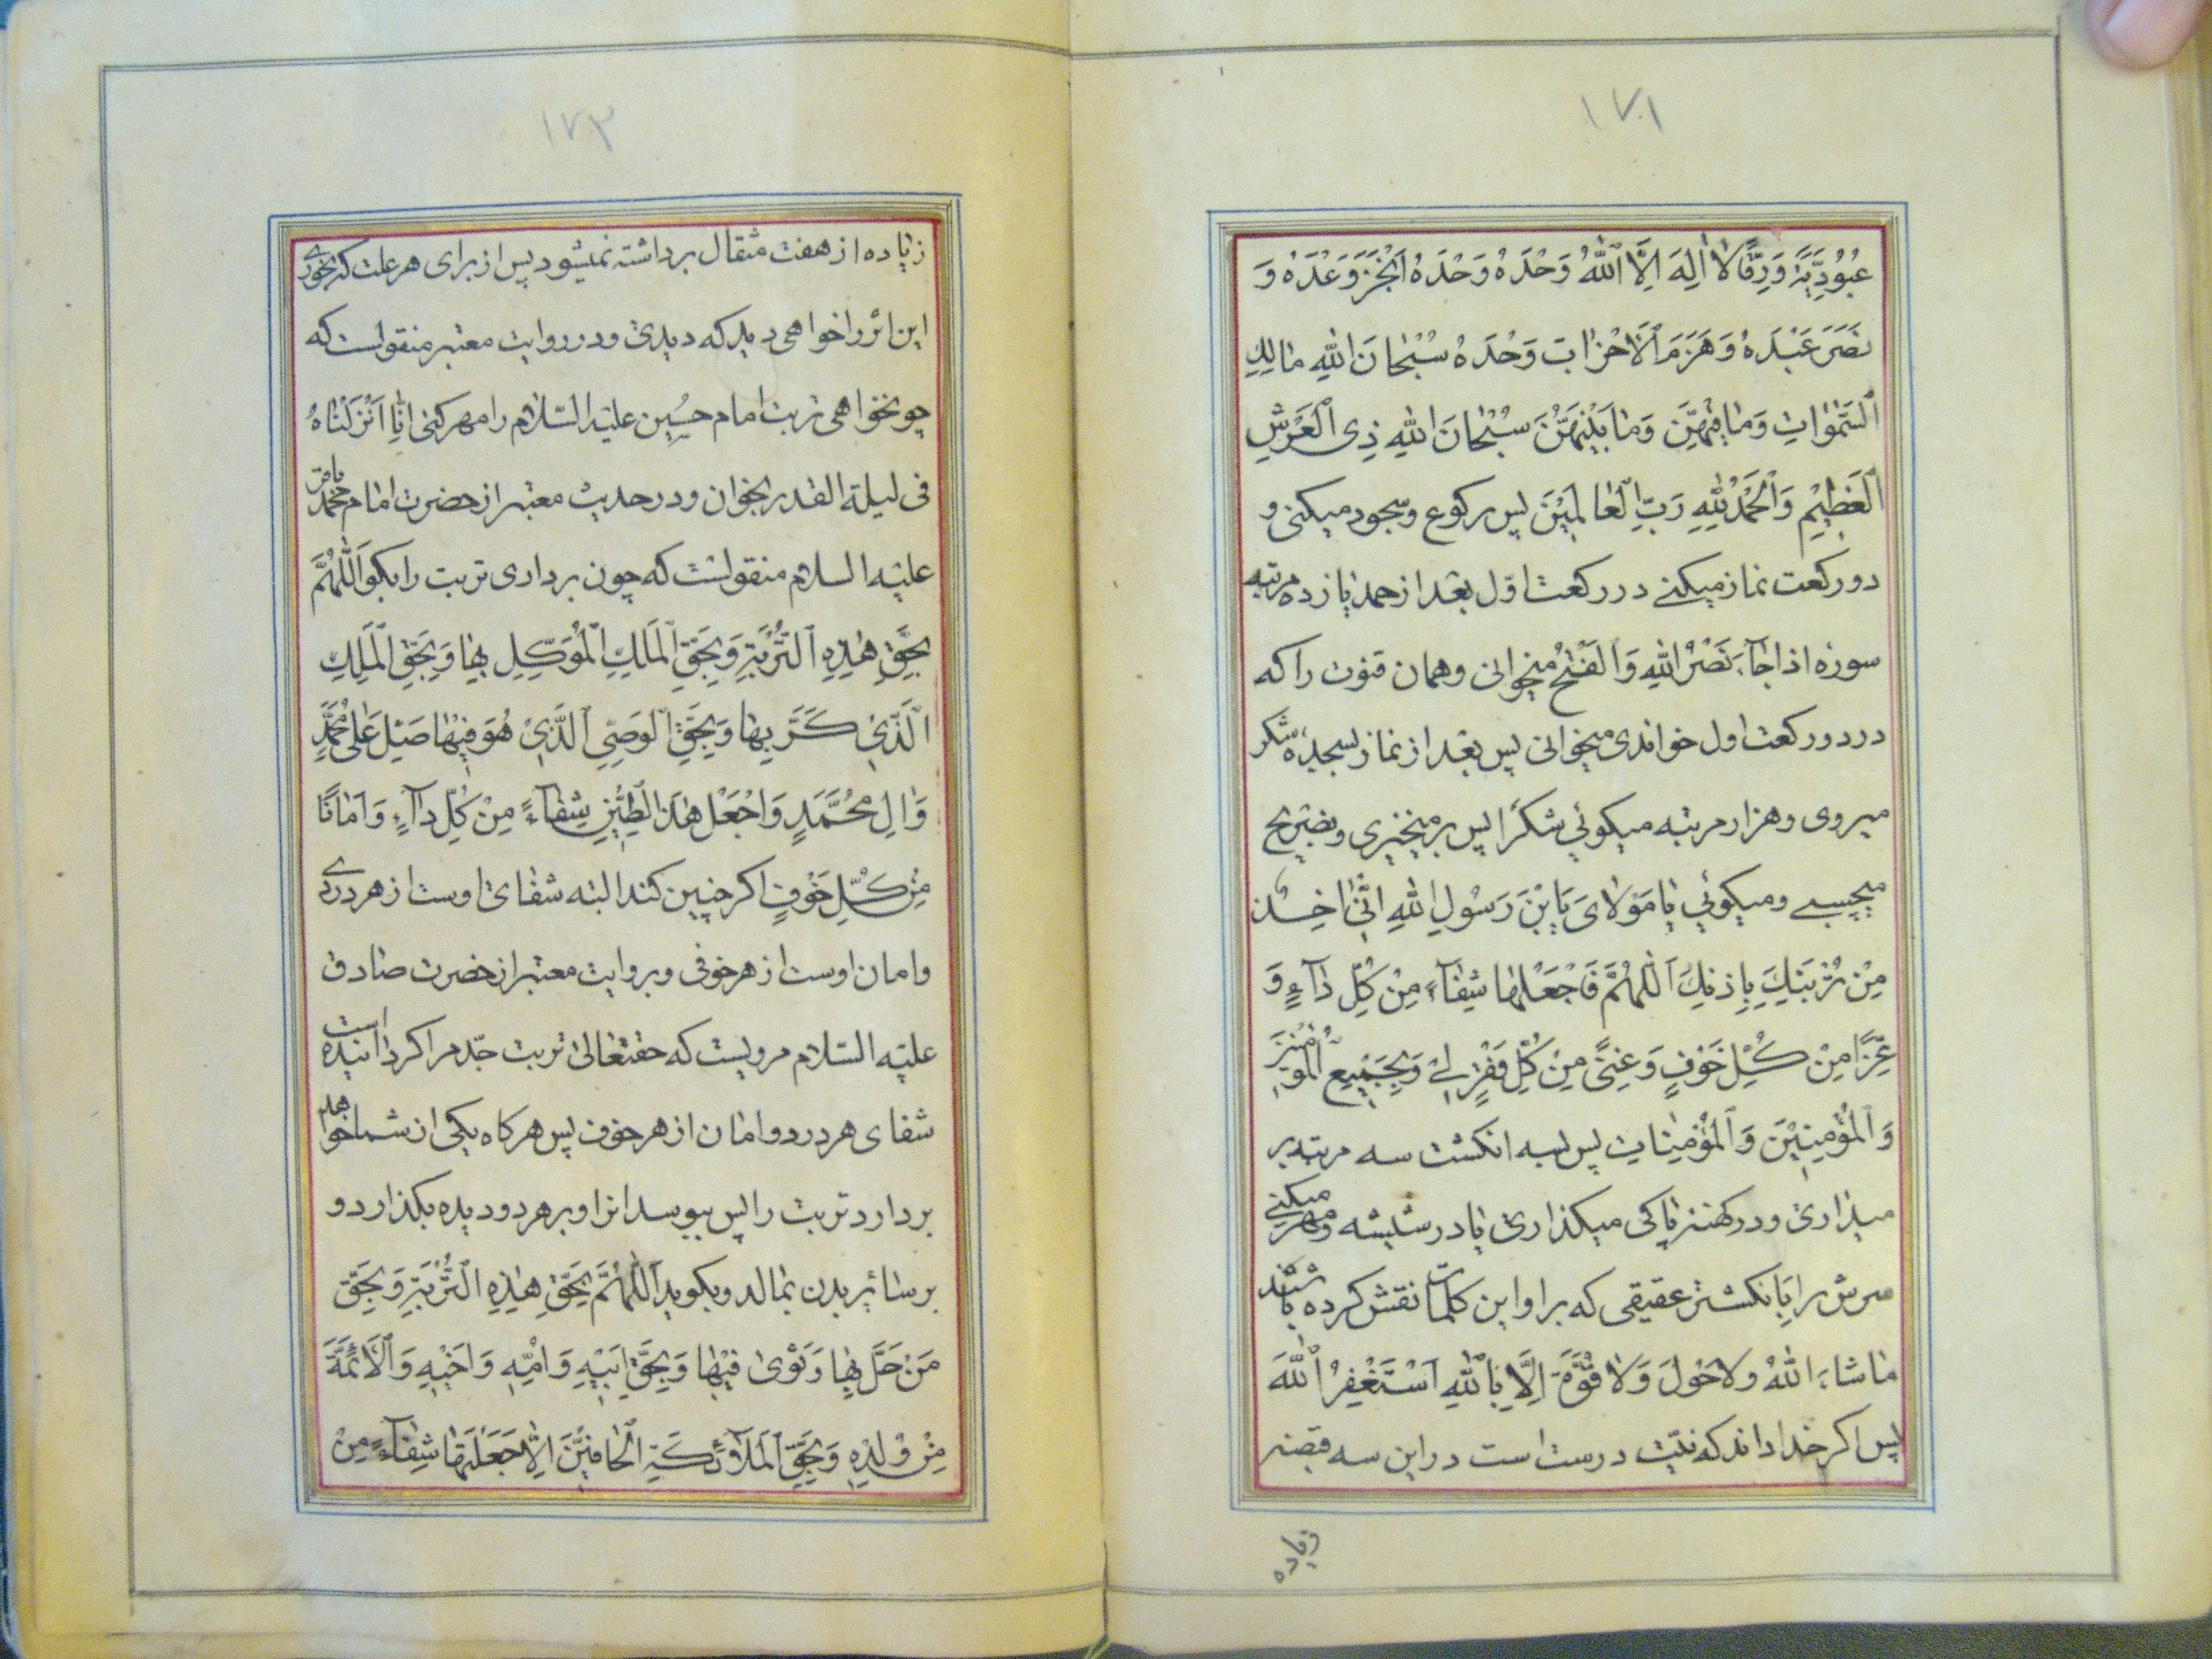 ۱۷۱
عُبُودِيَّةً وَرِقًّا لا اِلٰهَ اِلَّا اللّٰهُ وَحْدَهُ وَحْدَهُ اَنْجَزَ وَعْدَهُ وَ
نَصَرَ عَبْدَهُ وَهَزَمَ الْاَحْزابَ وَحْدَهُ سُبْحانَ اللّٰهِ مالِكِ
السَّمٰواتِ وَما فيهِنَّ وَما بَيْنَهُنَّ سُبْحانَ اللّٰهِ ذِی الْعَرْشِ
الْعَظيْمِ وَالْحَمْدُ لِلّٰهِ رَبِّ الْعالَميْنَ پس رکوع و سجود میکنی و
دو رکعت نماز میکنی در رکعت اوّل بعد از حمد یازده مرتبه
سوره اذا جآءَ نَصْرُ اللّٰهِ وَالْفَتْحُ میخوانی و همان قنوت را که
در دو رکعت اول خواندی میخوانی پس بعد از نماز بسجدۀ شکر
میروی و هزار مرتبه میکوئی شکرًا پس برمیخیزی و بضریح
میچسبی و میکوئی یا مَوْلایَ یَا بْنَ رَسُولِ اللّٰهِ اِنّی اٰخِذٌ
مِنْ تُرْبَتِكَ بِاِذنِكَ اَللّٰهُمَّ فَاجْعَلْها شِفآءً مِنْ كُلِّ دآءٍ وَ
عِزًّا مِنْ كُلِّ خَوْفٍ وَغِنًی مِنْ كُلِّ فَقْرٍ لی وَلِجَمیعِ
وَالْمُؤْمِنِیْنَ وَالْمُؤْمِناتِ پس بسه انکشت سه مرتبه بر
میداری و در کهنۀ پاکی میکذاری یا در شیشه و مهر میکنی
سرش را بانکشتر عقیقی که بر او این کلمات نقش کرده باشند
ما شاءَ اللّٰهُ وَلا حَوْلَ وَلا قُوَّةَ اِلَّا بِاللّٰهِ اَسْتَغْفِرُ اللّٰهَ
پس اکر خدا داند که نیّت درست است در این سه قبضه
زیاده
۱۷۳
زیاده از هفت مثقال برداشته نمیشود پس از برای هر علت که بخوری
این اثر را خواهی دید که دیدی و در روایت معتبر منقولست که
چو بخواهی تربت امام حُسین علیه السّلام را مهر کنی اِنّا اَنْزَلْناهُ
فی لیلة القدر بخوان و در حدیث معتبر از حضرت امام محمّد باقر
علیه السلام منقولست که چون برداری تربت را بکو اَللّٰهُمَّ
بِحَقِّ هٰذِهِ التُّرْبَةِ وَبِحَقِّ الْمَلَكِ الْمُوَكَّلِ بِها وَبِحَقِّ الْمَلَكِ
الَّذی كَرَّ بِها وَبِحَقِّ الْوَصِیِّ الَّذی هُوَ فیها صَلِّ عَلٰی مُحَمَّدٍ
وَاٰلِ مُحَمَّدٍ وَاجْعَلْ هٰذَا الطّینَ شِفآءً مِنْ كُلِّ دآءٍ وَاَمانًا
مِنْ كُلِّ خَوْفٍ اکر چنین کند البته شفای اوست از هر دردی
و امان اوست از هر خوفی و بروایت معتبر از حضرت صادق
علیه السّلام مرویست که حقتعالی تربت جدّ مرا کردانیده است
شفای هر درد و امان از هر خوف پس هر کاه یکی از شما خواهد
بردارد تربت را پس ببوسد انرا و بر هر دو دیده بکذارد و
بر سائر بدن بمالد و بکوید اَللّٰهُمَّ بِحَقِّ هٰذِهِ التُّرْبَةِ وَبِحَقِّ
مَنْ حَلَّ بِها وَثَوٰی فیها وَبِحَقِّ اَبیْهِ وَاُمِّهِ وَاَخیْهِ وَالْاَئِمَّةِ
مِنْ وُلْدِهِ وَبِحَقِّ الْمَلآئِكَةِ الْحافّینَ اِلَّا جَعَلْتَها شِفآءً مِنْ